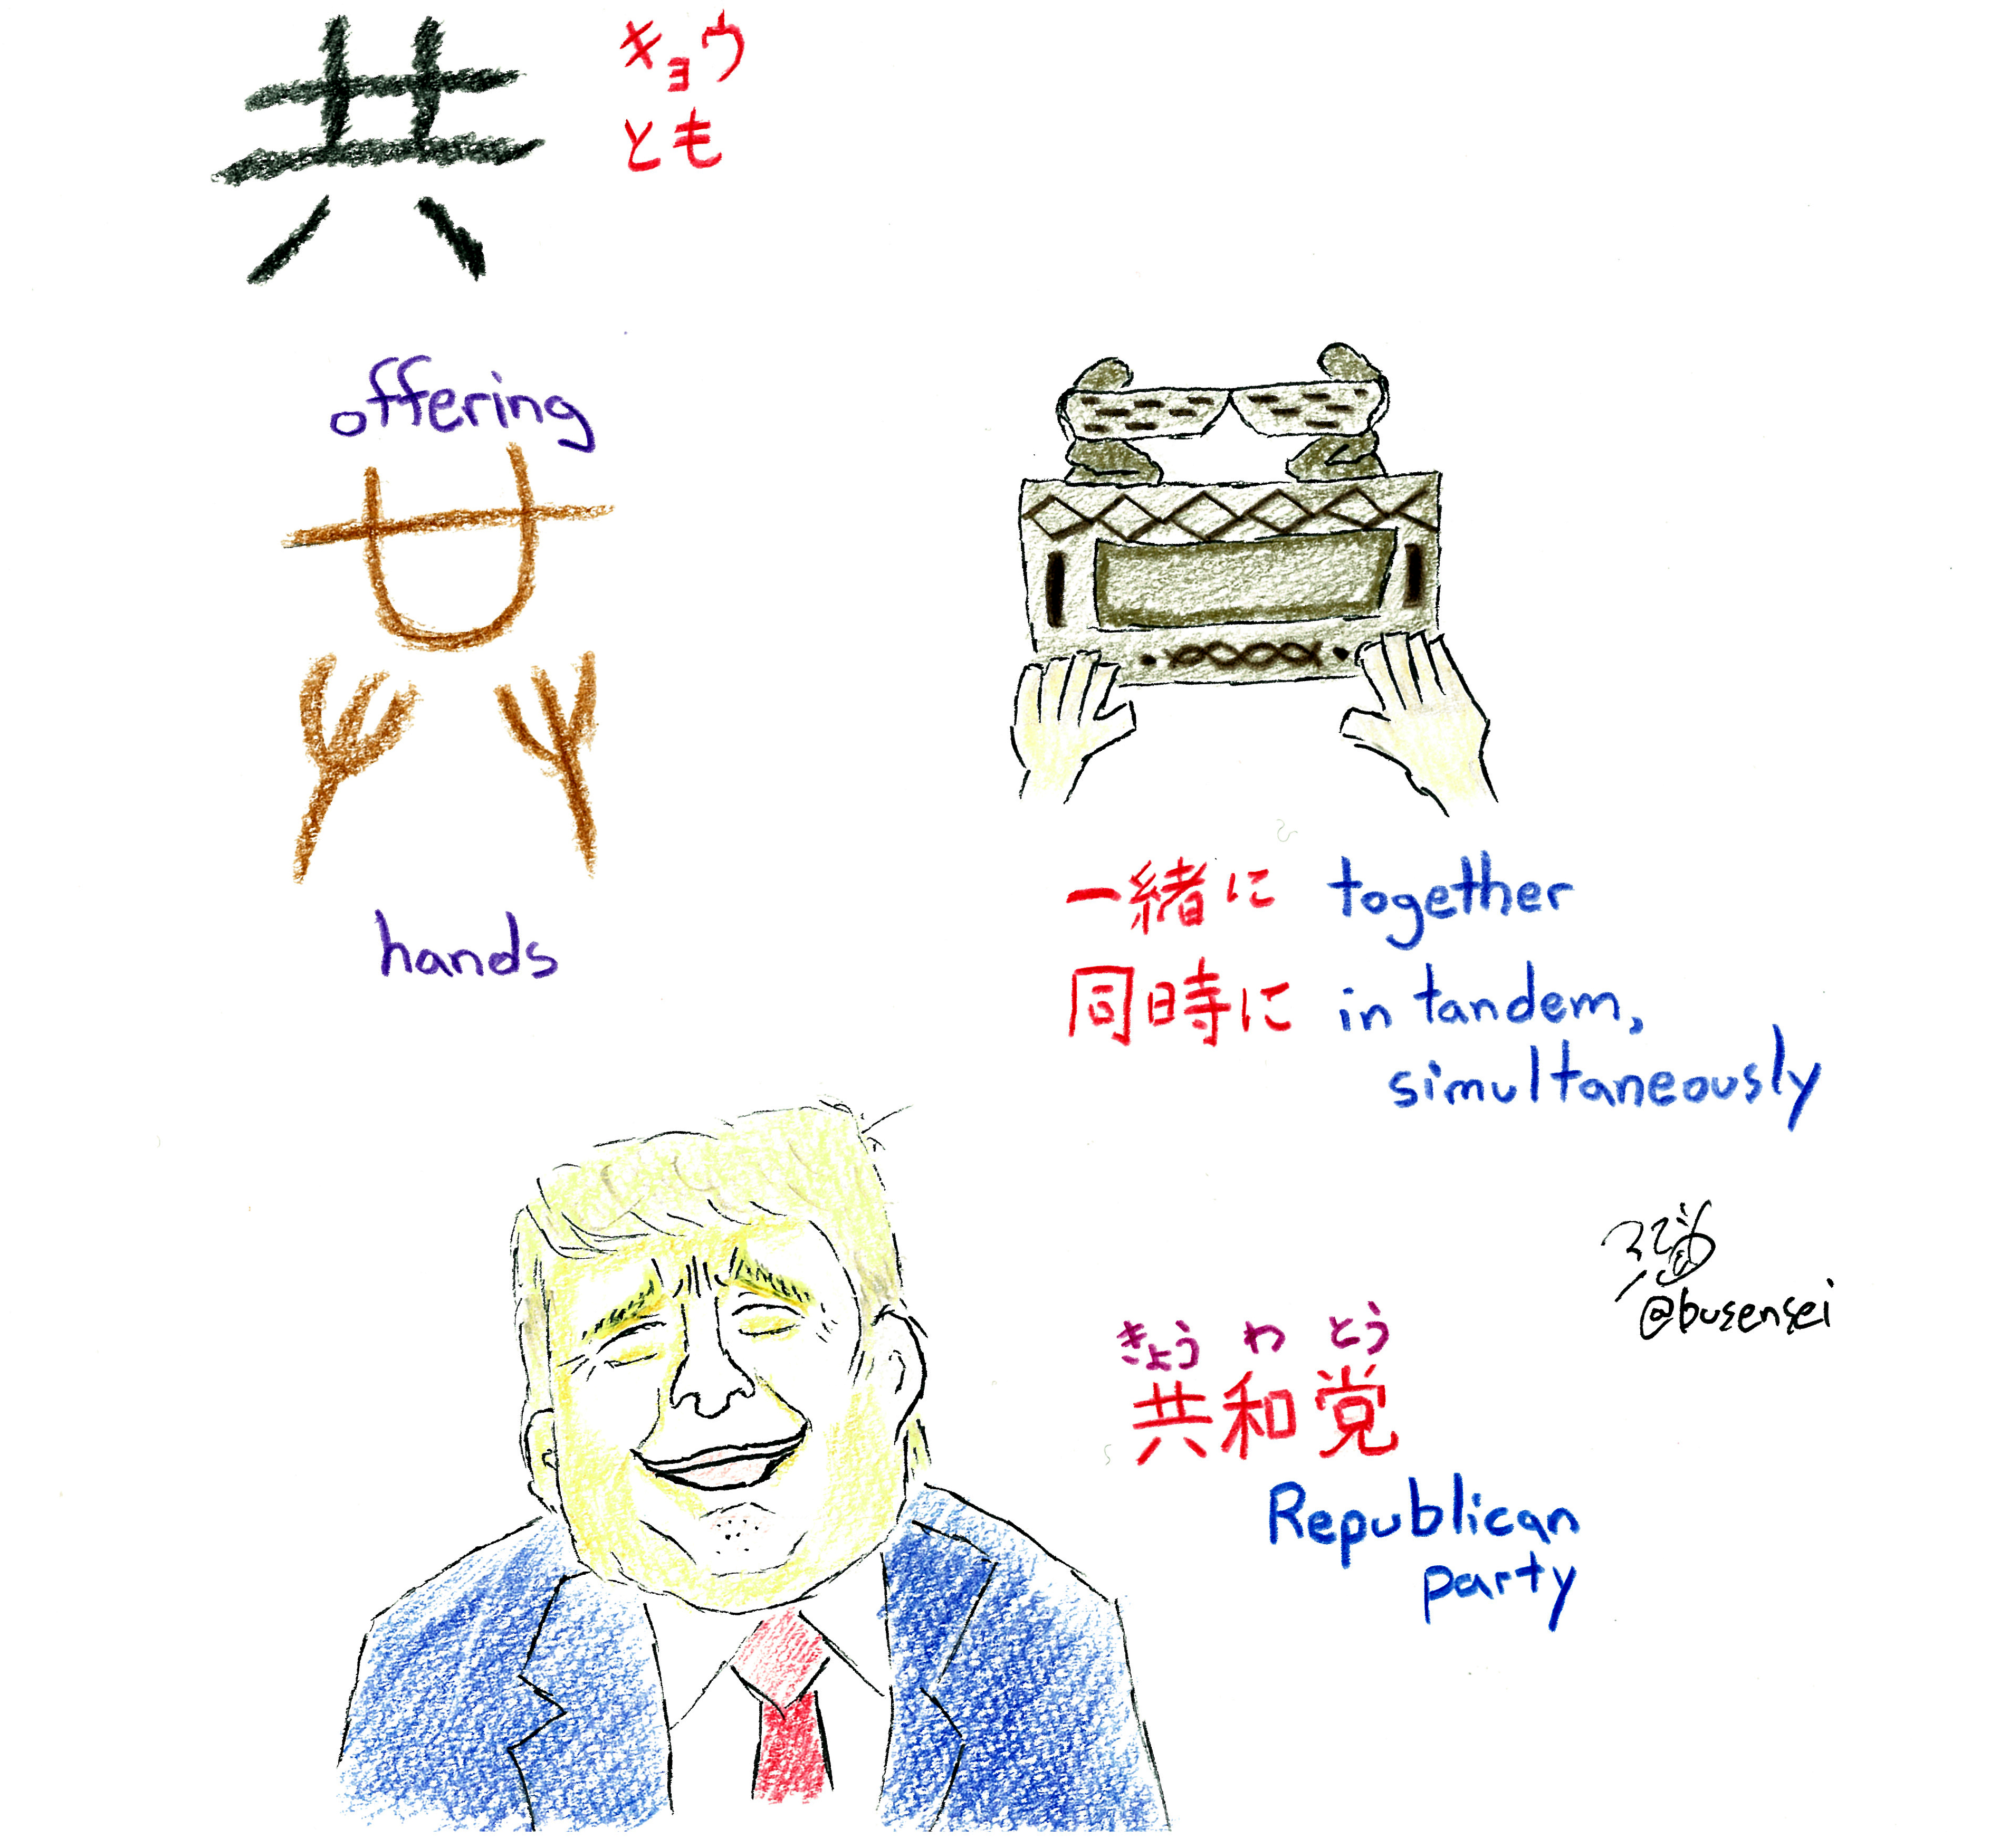 共 キョウ
とも
offering
hands
一緒に together
同時に in tandem,
simultaneously
きょう わ とう
共和党
Republican
party
@busensei